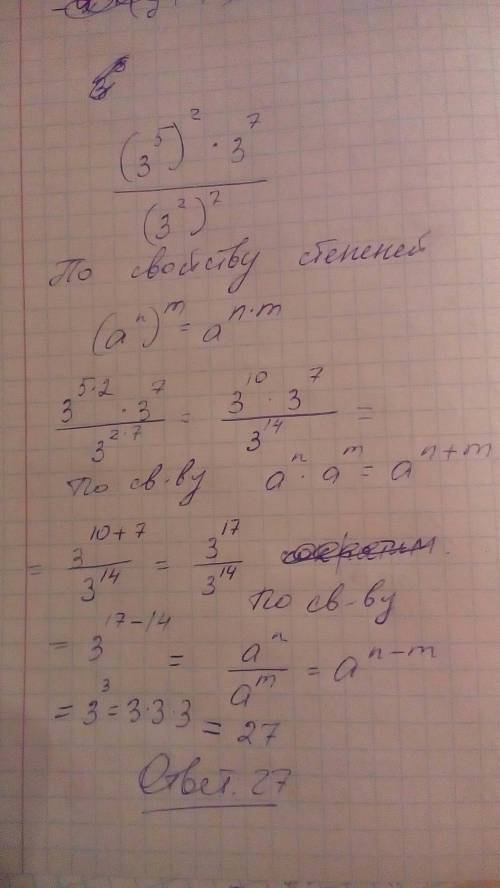 (3^5)^2 · 3^7
(3^2)^7
По свойству степеней
(a^n)^m = a^{n·m}
3^{5·2} · 3^7 / 3^{2·7} = 3^{10} · 3^7 / 3^{14} =
По св-ву a^n · a^m = a^{n+m}
= 3^{10+7} / 3^{14} = 3^{17} / 3^{14}
По св-ву
= 3^{17-14} = a^n / a^m = a^{n-m}
= 3^3 = 3·3·3 = 27
Ответ. 27